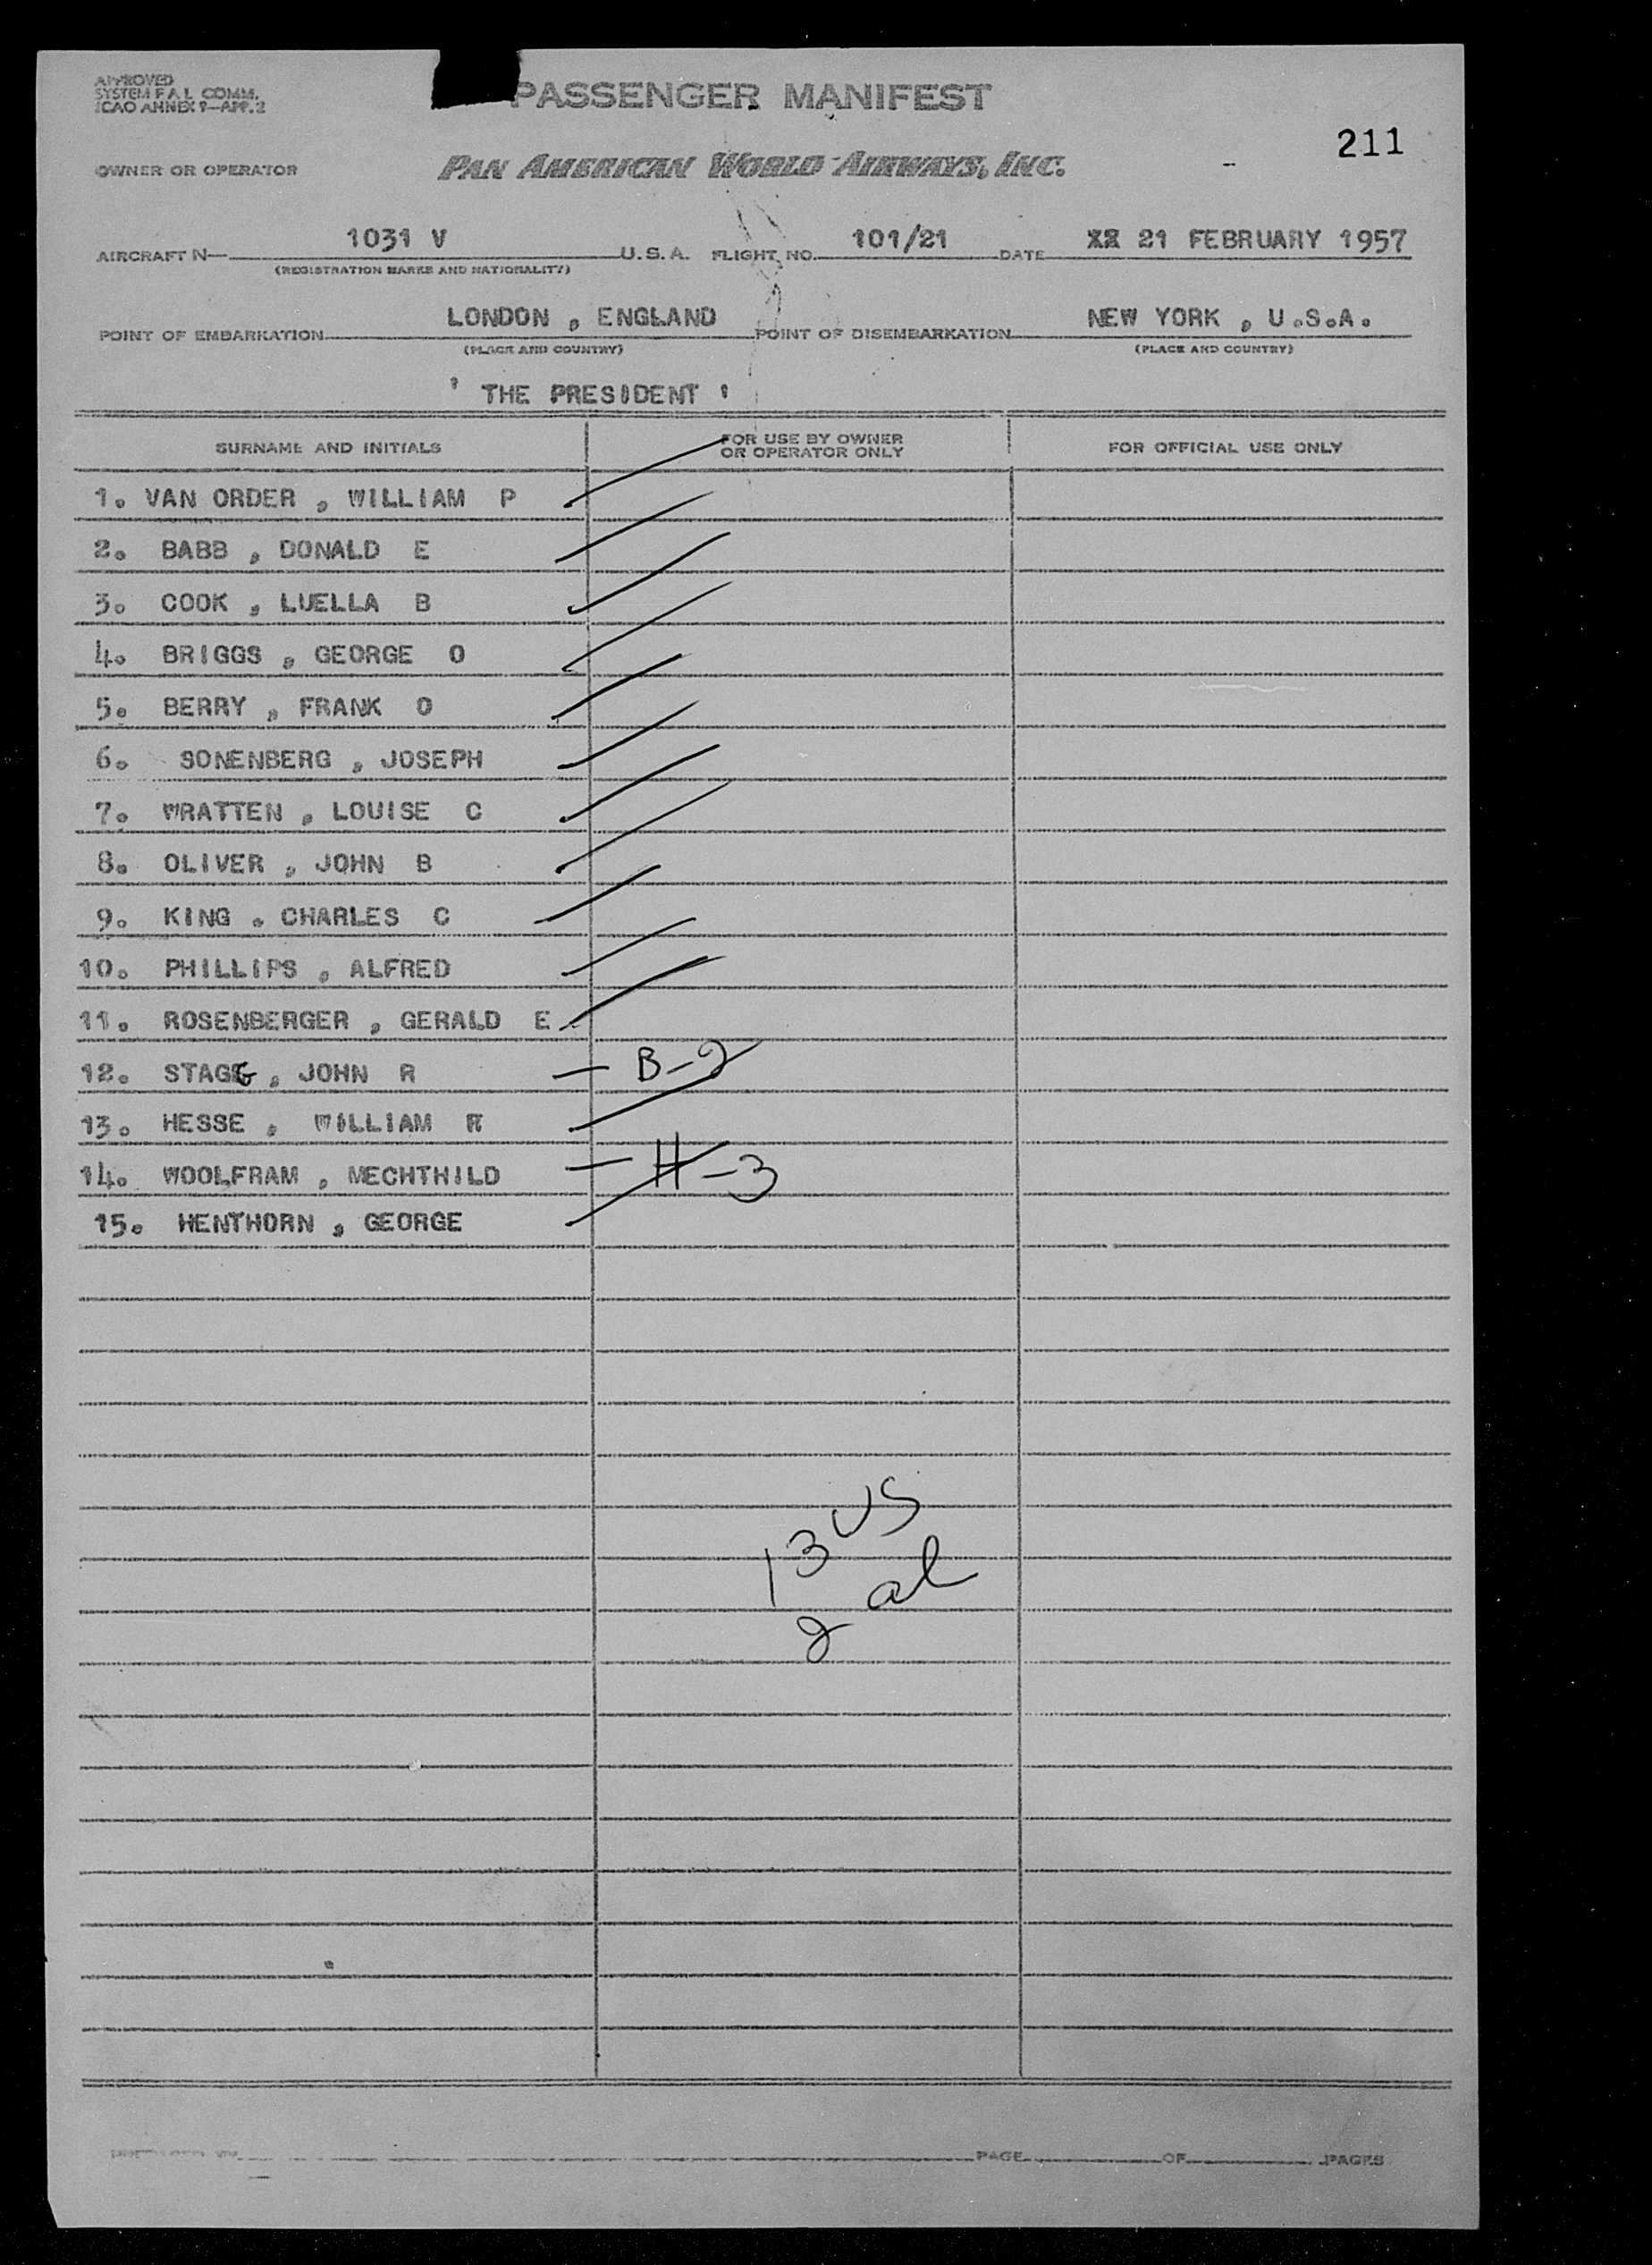 APPROVED
SYSTEM F.A.L. COMM.
ICAO ANNEX 9—APP. 2
PASSENGER MANIFEST
211
OWNER OR OPERATOR PAN AMERICAN WORLD AIRWAYS, INC.
AIRCRAFT N— 1031 V U.S.A. FLIGHT NO. 101/21 DATE XX 21 FEBRUARY 1957
(REGISTRATION MARKS AND NATIONALITY)
POINT OF EMBARKATION LONDON , ENGLAND POINT OF DISEMBARKATION NEW YORK , U.S.A.
(PLACE AND COUNTRY) (PLACE AND COUNTRY)
' THE PRESIDENT '
SURNAME AND INITIALS FOR USE BY OWNER OR OPERATOR ONLY FOR OFFICIAL USE ONLY
1. VAN ORDER , WILLIAM P
2. BABB , DONALD E
3. COOK , LUELLA B
4. BRIGGS , GEORGE O
5. BERRY , FRANK O
6. SONENBERG , JOSEPH
7. WRATTEN , LOUISE C
8. OLIVER , JOHN B
9. KING , CHARLES C
10. PHILLIPS , ALFRED
11. ROSENBERGER , GERALD E
12. STAGG , JOHN R — B-2
13. HESSE , WILLIAM R
14. WOOLFRAM , MECHTHILD — H-3
15. HENTHORN , GEORGE
13 US
2 al
PAGE OF PAGES